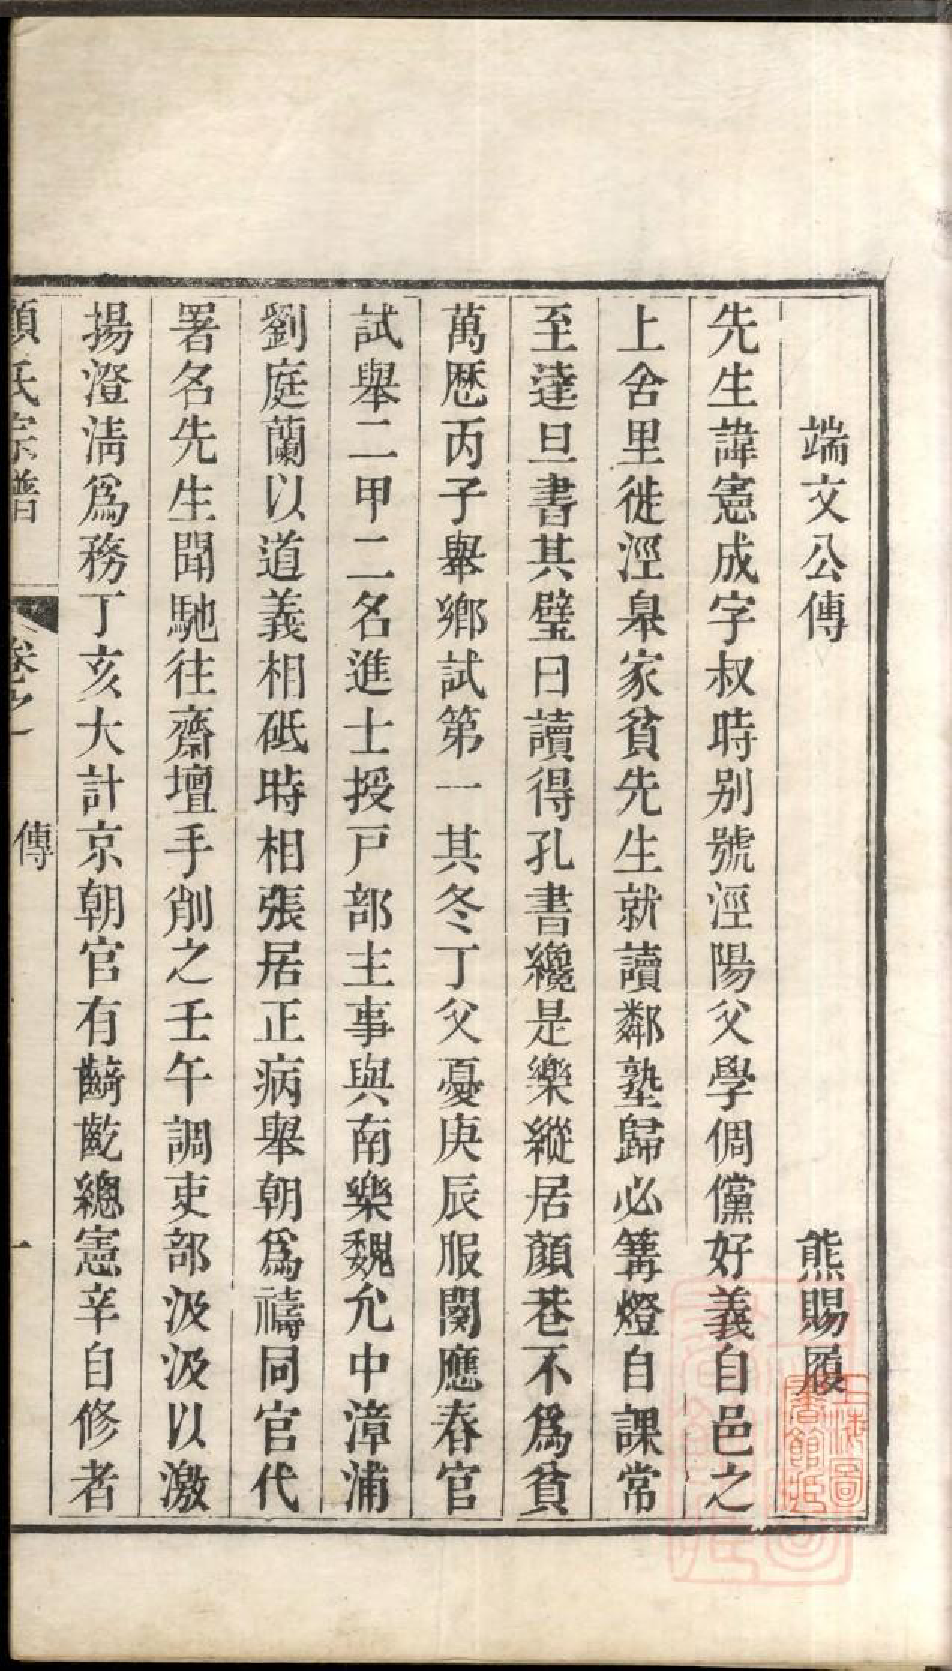 端文公傳 熊賜履
先生諱憲成字叔時别號涇陽父學倜儻好義自邑之
上舍里徙涇皐家貧先生就讀鄰塾歸必篝燈自課常
至達旦書其壁曰讀得孔書纔是樂縱居顏巷不爲貧
萬歷丙子舉鄉試第一其冬丁父憂庚辰服闋應春官
試舉二甲二名進士授戸部主事與南樂魏允中漳浦
劉庭蘭以道義相砥時相張居正病舉朝爲禱同官代
署名先生聞馳往齋壇手削之壬午調吏部汲汲以激
揚澄淸爲務丁亥大計京朝官有齮齕總憲辛自修者
顧氏宗譜 卷之一 傳 一
上海圖書館藏